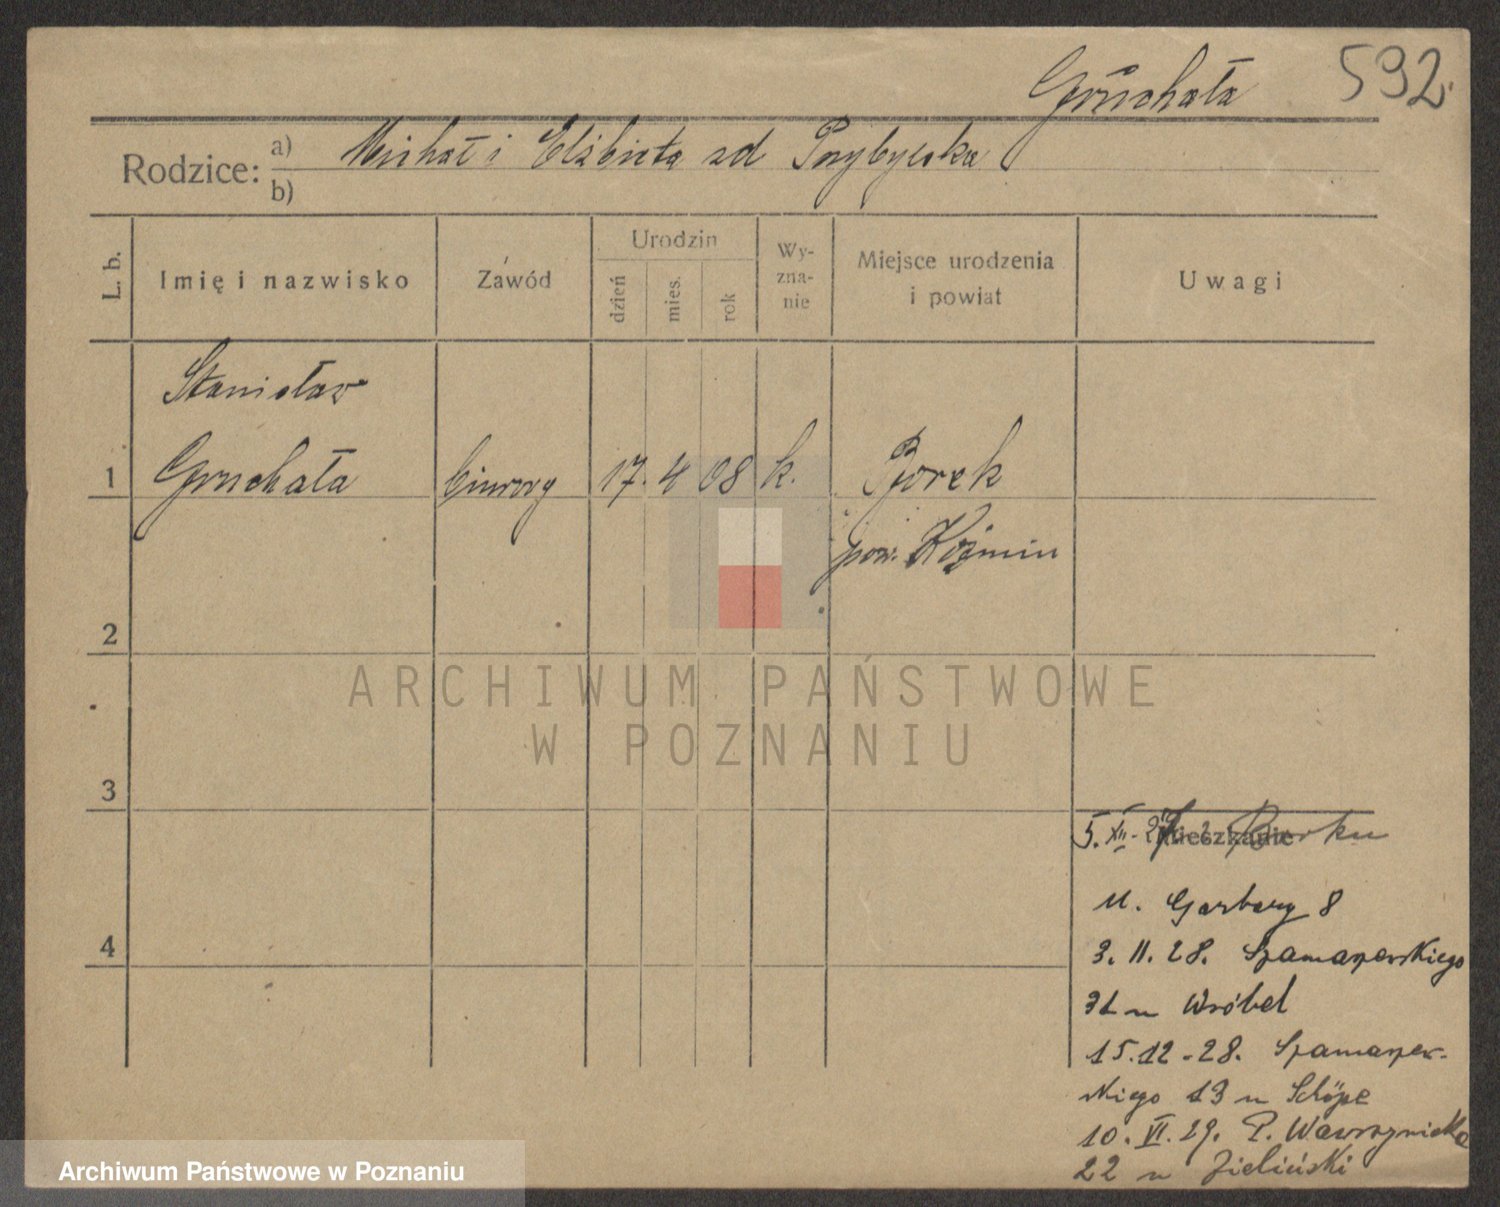 Gruchała 592.
Rodzice: a) Michał i Elżbieta zd Przybylska
b)
L. b. Imię i nazwisko Zawód Urodzin dzień mies. rok Wy-zna-nie Miejsce urodzenia i powiat Uwagi
Stanisław
1 Gruchała biurowy 17. 4 08 k. Borek
pow. Koźmin
2
ARCHIWUM PAŃSTWOWE
W POZNANIU
3
5. XII. 27. z Borku
Mieszkanie
u. Garbary 8
4
3. II. 28. Szamarzewskiego
31 u Wróbel
15.12.28. Szamarzew-
skiego 13 u Schöpe
10. VI. 29. P. Wawrzyniaka
22 u Zieliński
Archiwum Państwowe w Poznaniu